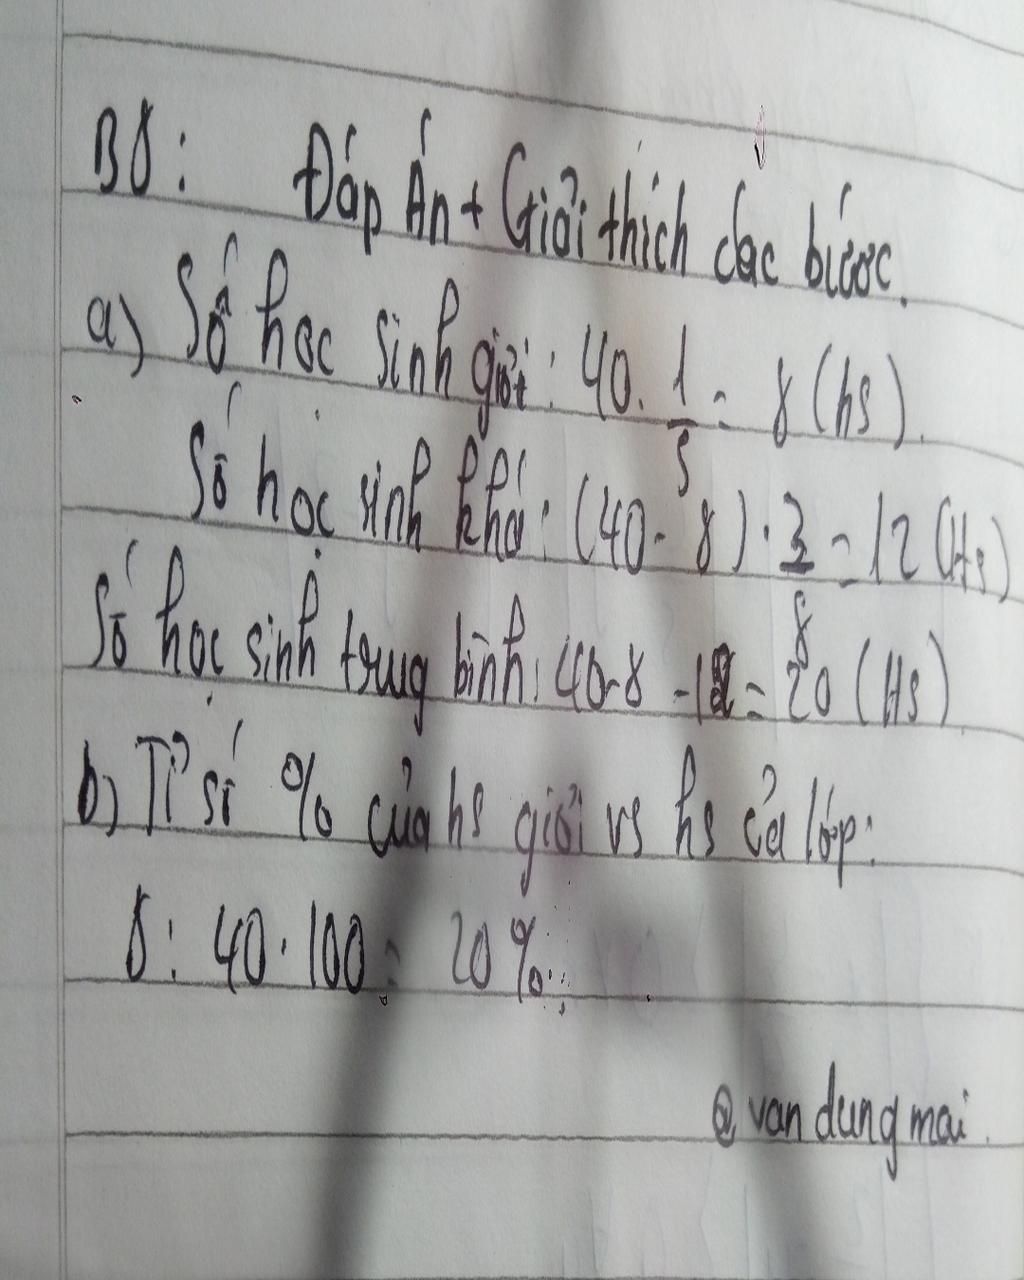 B8: Đáp Án + Giải thích các bước.
a) Số học sinh giỏi: 40. 1/5 = 8 (hs).
Số học sinh khá: (40 - 8) . 3/8 = 12 (Hs)
Số học sinh trung bình: 40-8 -12 = 20 (Hs)
b) Tỉ số % của hs giỏi vs hs cả lớp:
8 : 40 . 100 = 20 %
@ van dung mai.